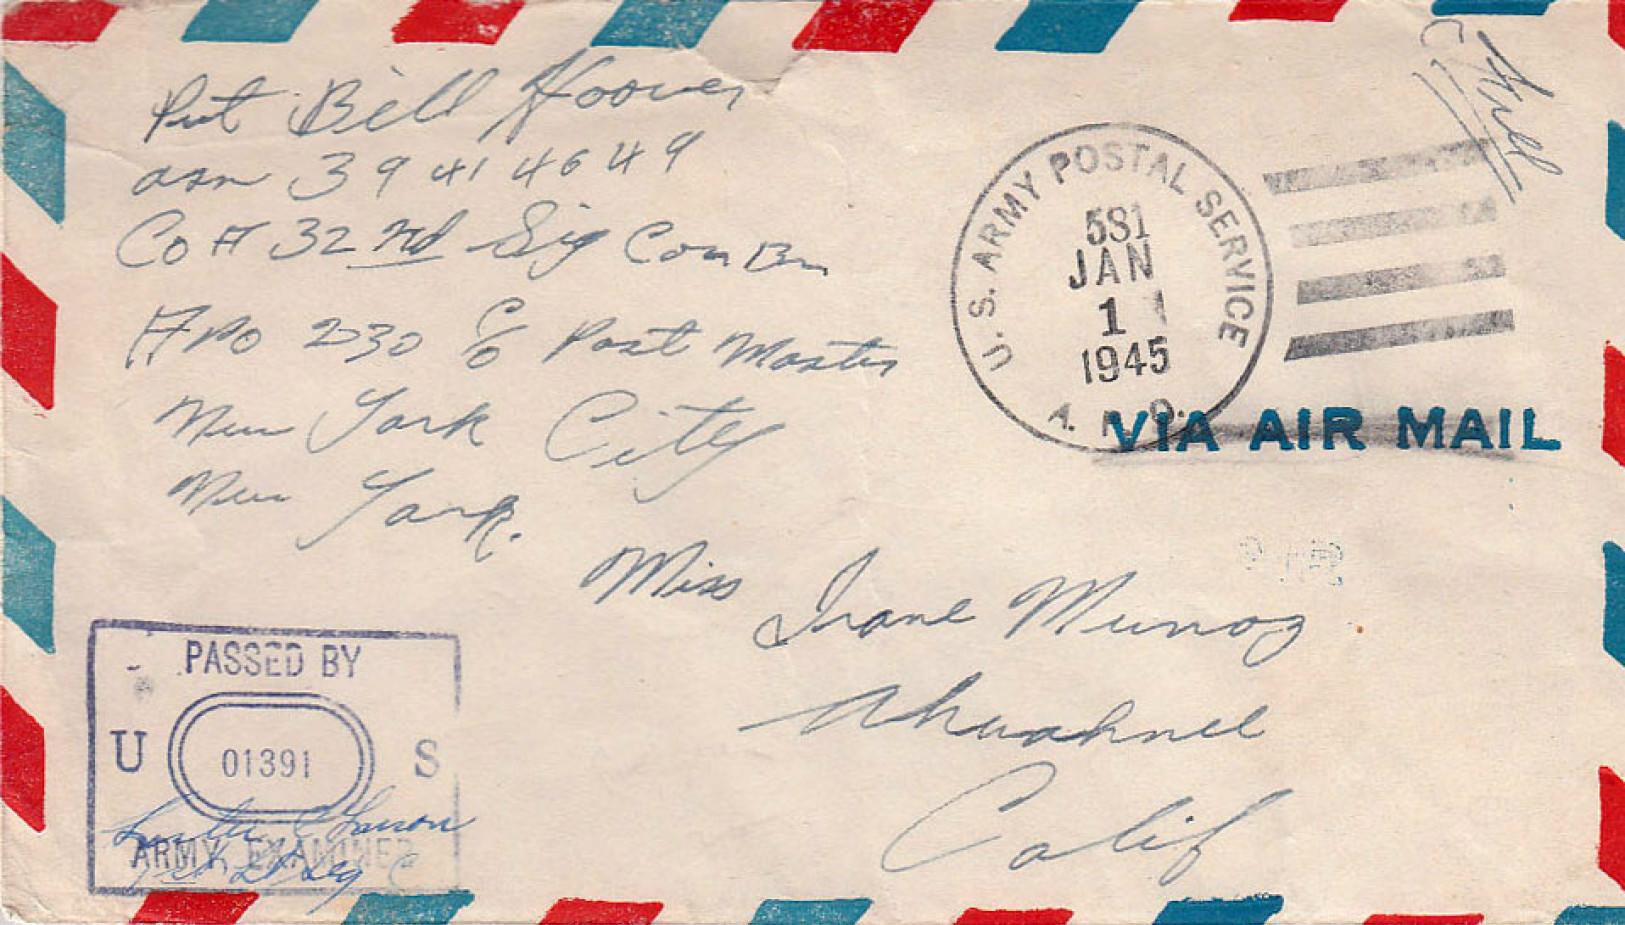 Pvt Bill Hoover
asn 39414649
Co A 32nd Sig Con Bn
APO 230 c/o Post Master
New York City
New York.
Free
U. S. ARMY POSTAL SERVICE
581
JAN
1
1945
A. P. O.
VIA AIR MAIL
Miss Irane Munoz
Ahwahnee
Calif
PASSED BY
U 01391 S
ARMY EXAMINER